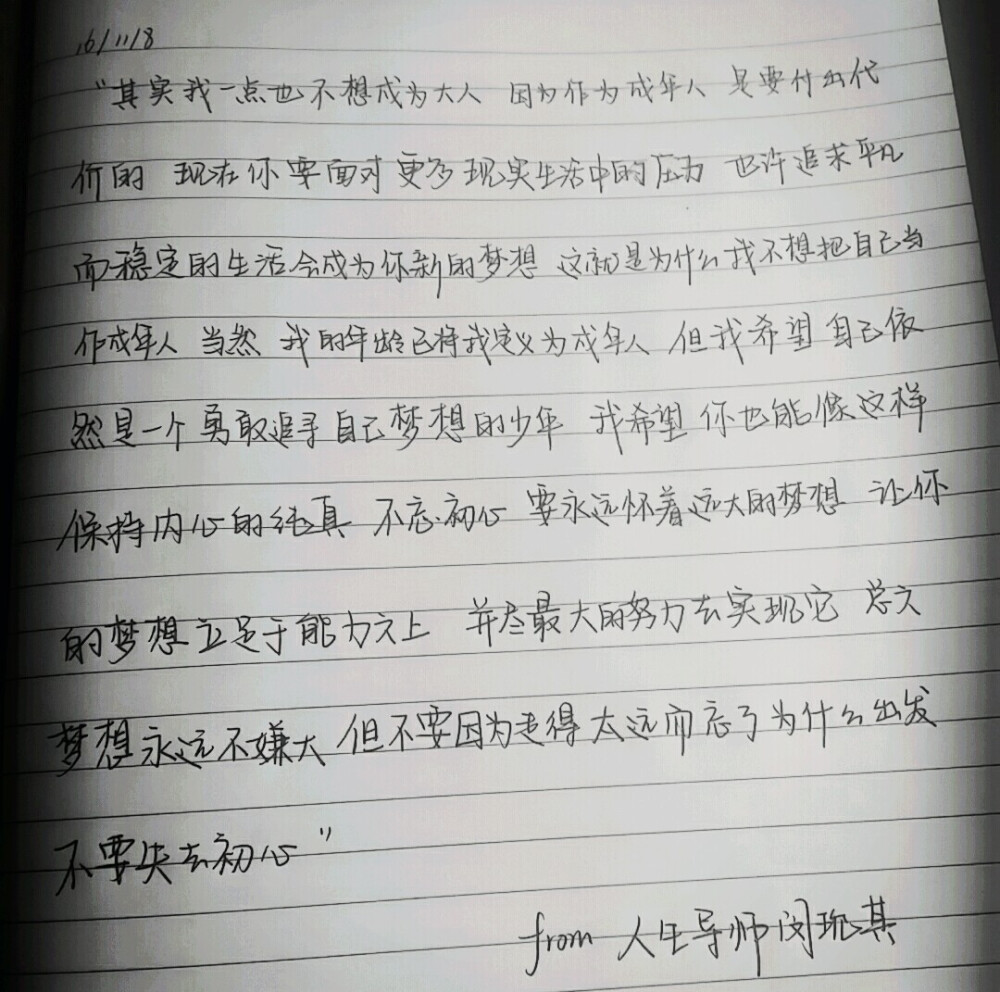 16/11/8
“其实我一点也不想成为大人 因为作为成年人 是要付出代
价的 现在你要面对更多现实生活中的压力 也许追求平凡
而稳定的生活会成为你新的梦想 这就是为什么我不想把自己当
作成年人 当然 我的年龄已将我定义为成年人 但我希望自己依
然是一个勇敢追寻自己梦想的少年 我希望你也能像这样
保持内心的纯真 不忘初心 要永远怀着远大的梦想 让你
的梦想立足于能力之上 并尽最大的努力去实现它 总之
梦想永远不嫌大 但不要因为走得太远而忘了为什么出发
不要失去初心”
from 人生导师闵玧其